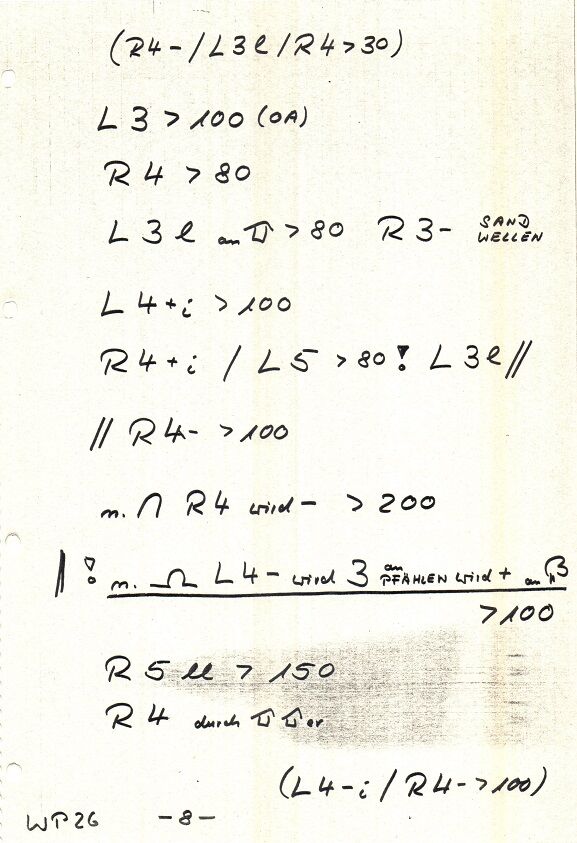 (R4-/L3l/R4>30)
L3 > 100 (OA)
R4 > 80
L3l an > 80 R3- SAND WELLEN
L4+i > 100
R4+i / L5 > 80! L3l//
// R4- > 100
n. ∩ R4 wird - > 200
! n. Ω L4- wird 3 an PFÄHLEN wird + an
> 100
R5ll > 150
R4 durch
(L4-i / R4- > 100)
WP26 -8-